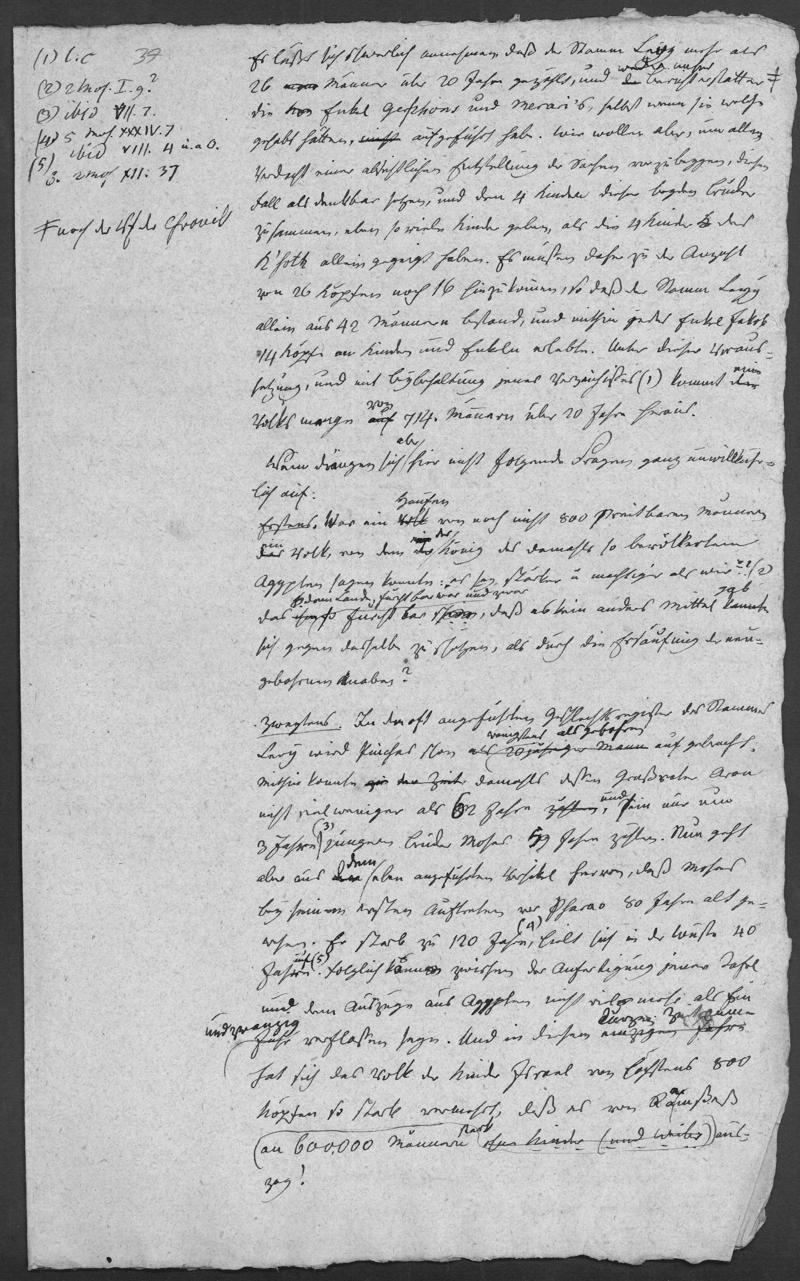 (1) l. c 37
(2) 2 Mos. I. 9.
(3) ibid VII. 7.
(4) 5 Mos XXXIV. 7
(5) ibid VIII. 4 u. a O.
3. 2 Mos XII. 37
≠ nach der der Chronik
Es läßt sich schwerlich annehmen, daß der Stamm Levy mehr als
26 Männer über 20 Jahre gezählt, und weder unser Berichterstatter ≠
die Enkel Geschons und Merari's, selbst wenn sie welche
gehabt hätten, aufgeführt hab. Wir wollen aber, um allen
Verdacht einer absichtlichen Entstellung der Sachen vorzubeugen, diesen
Fall als denkbar setzen, und den 4 Kindern dieser beyden Brüder
zusammen, eben so viele Kinder geben, als die 4 Kinder des
K'hoth allein gezeigt haben. Es müssen daher zu der Anzahl
von 26 Köpfen noch 16 hinzukommen, so daß der Stamm Levy
allein aus 42 Männern bestand, und mithin jeder Enkel Jakob
14 Köpfe an Kindern und Enkeln erlebte. Unter dieser Voraus-
setzung, und mit Beybehaltung jenes Verzeichnisses (1) kommt eine
Volksmenge von 714. Männern über 20 Jahre heraus.
Wem drängen sich aber hier nicht folgende Fragen ganz unwillkühr-
lich auf:
Erstens. War ein Haufen von noch nicht 800 streitbaren Männern
ein Volk, von dem der König des damahls so bevölkerten
Agypten sagen konnte: es sey stärker u mächtiger als wir (2)
das dem Lande furchtbar war und zwar, daß es kein anderes Mittel gab
sich gegen dasselbe zu schützen, als durch die Ersäufung der neu-
gebohrnen Knaben?
Zweytens. In dem oft angeführten Geschlechtsregister des Stammes
Levy wird Pinchas schon als wenigstens als gebohren aufgebracht.
Mithin konnte damahls dessen Großvater Aron
nicht viel weniger als 62 Jahre, und sein nur um
3 Jahre (3) jüngerer Bruder Moses 59 Jahre zählen. Nun geht
aber aus dem eben angeführten Versikel hervor, daß Moses
bey seinem ersten Auftreten vor Pharao 80 Jahre alt ge-
wesen. Er starb zu 120 Jahr (4), hielt sich in der Wüste 40
Jahre auf (5). Folglich können zwischen der Anfertigung jener Tafel
und dem Auszuge aus Agypten nicht viel mehr als Ein
und zwanzig Jahr verflossen seyn. Und in diesem kurzen Zeitraume
hat sich das Volk der Kinder Israel von höchstens 800
Köpfen so stark vermehrt, daß es von Raamßeß
an 600,000 Männern stark ohne Kinder (und Weiber) aus-
zog!